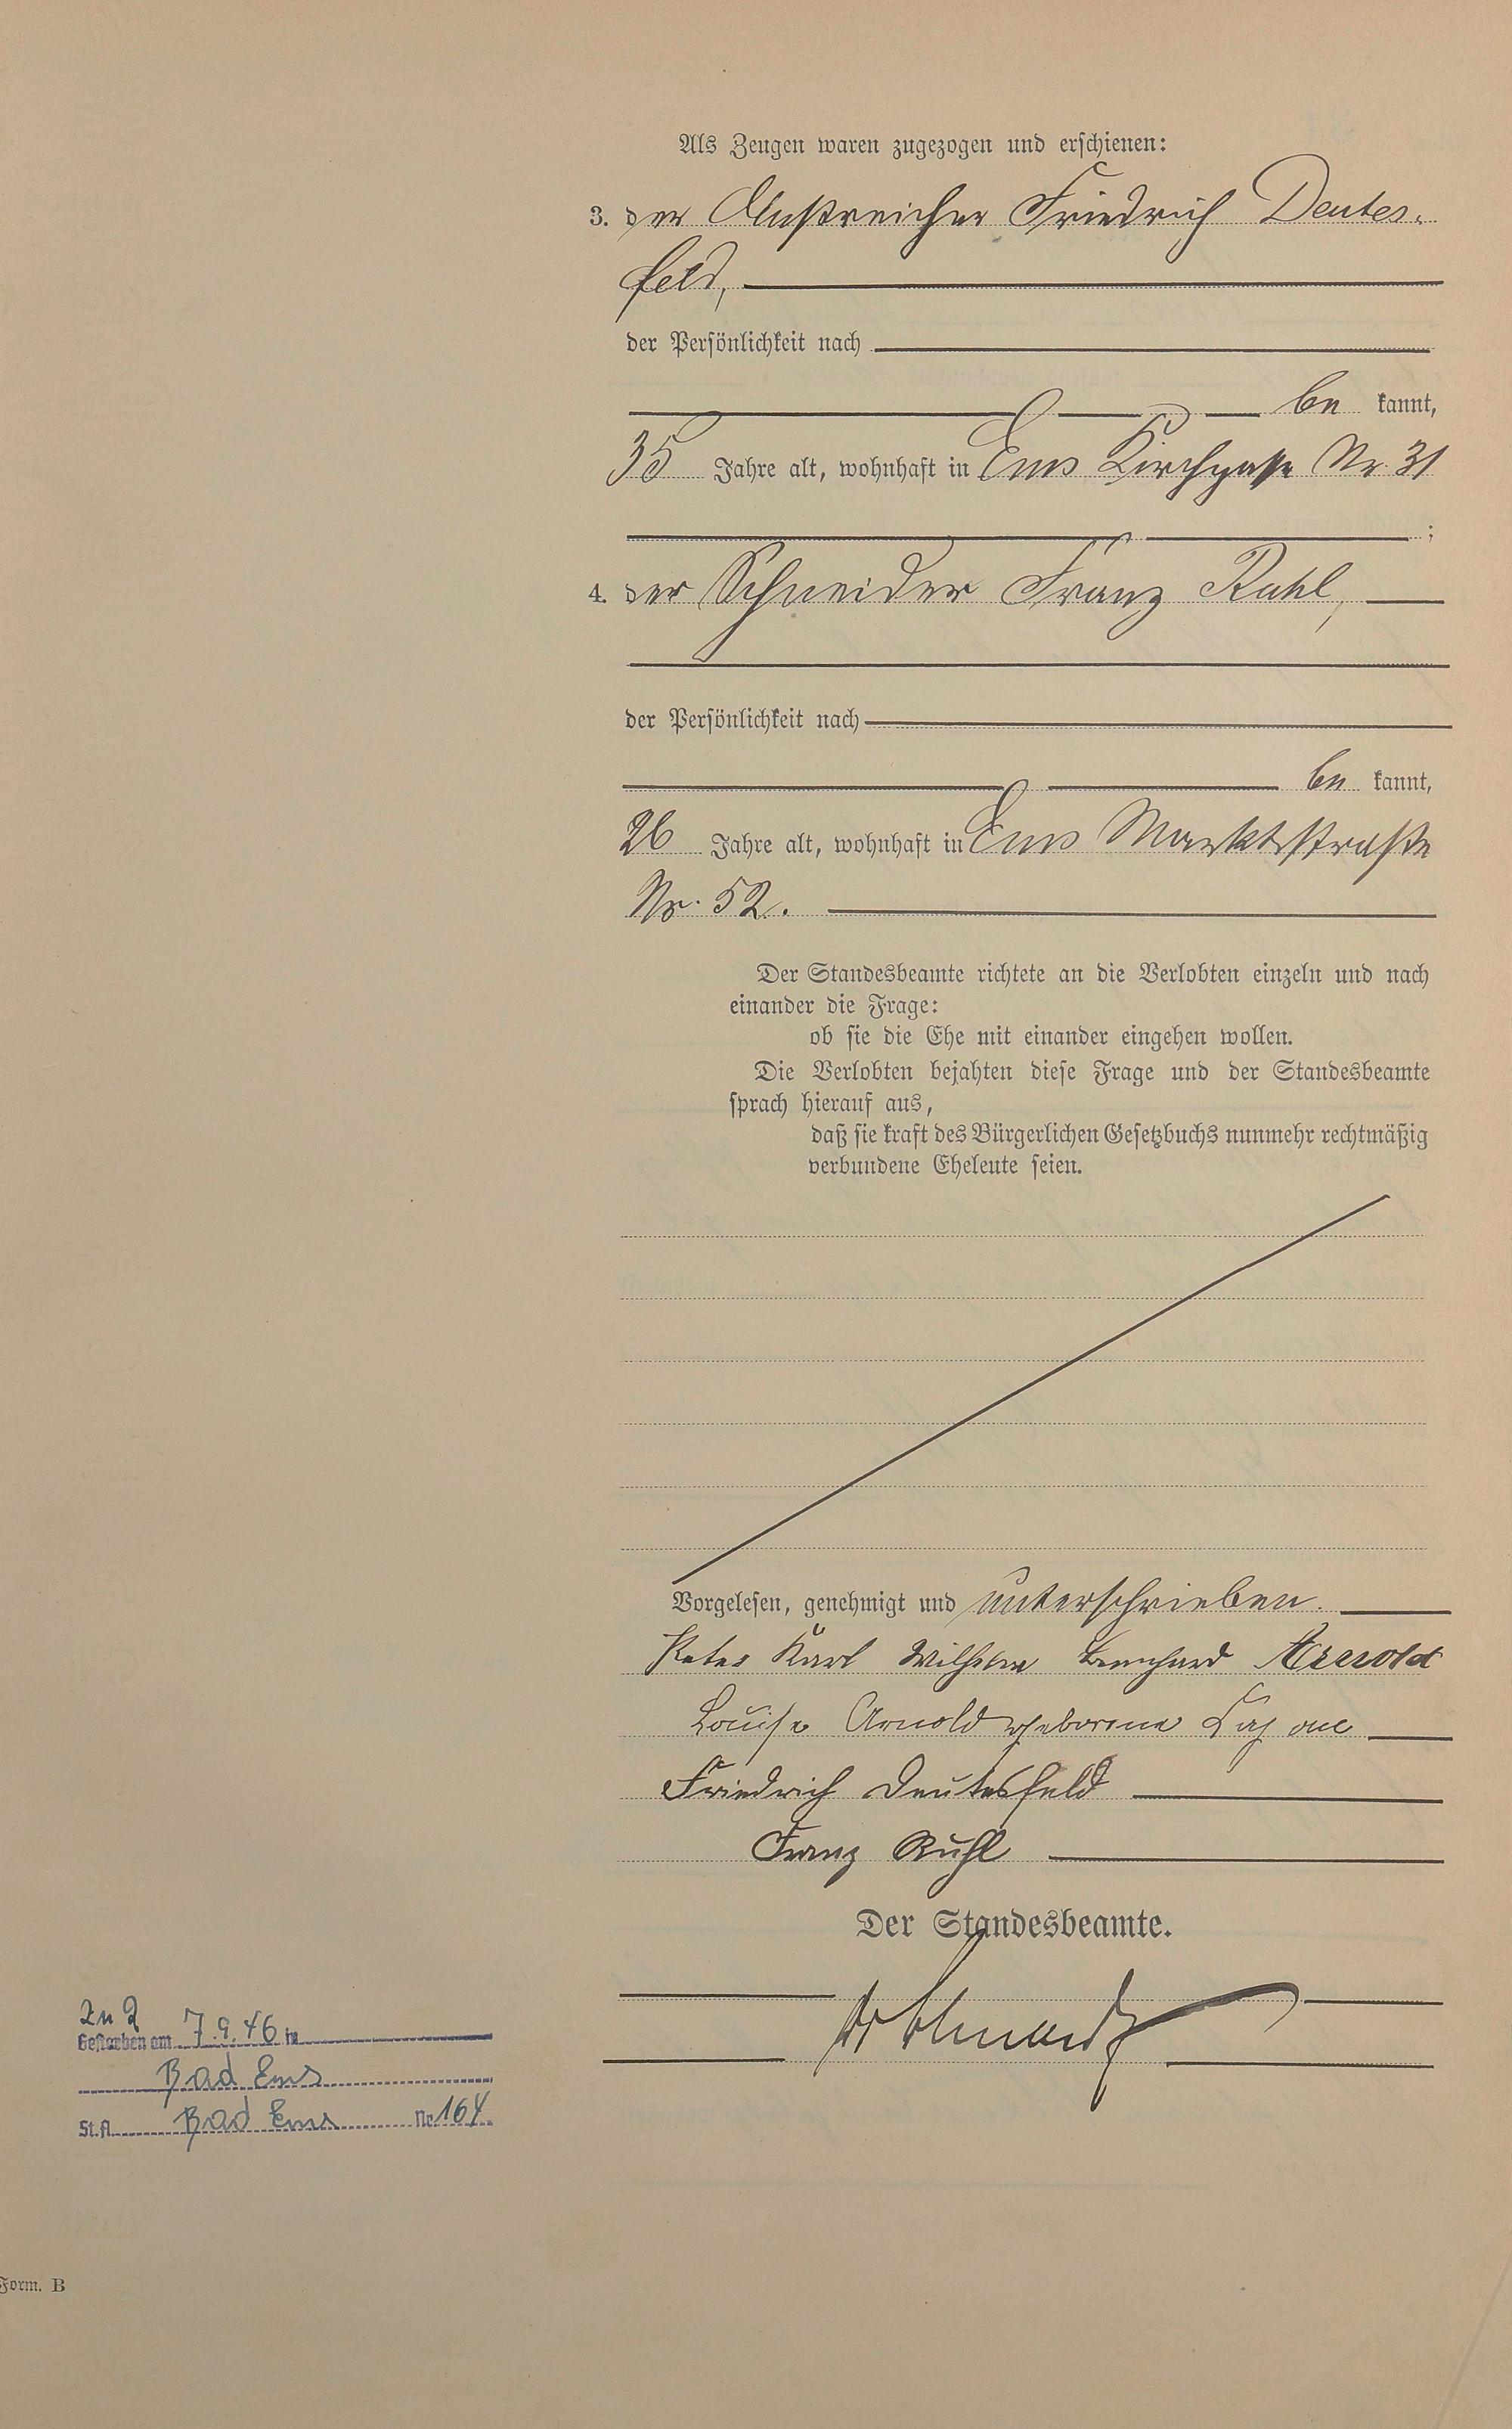 Als Zeugen waren zugezogen und erschienen:
3. der Anstreicher Friedrich Deutes-
feld,
der Persönlichkeit nach
be kannt,
35 Jahre alt, wohnhaft in Ems Kirchgasse Nr. 31
;
4. der Schneider Franz Ruhl,
der Persönlichkeit nach
be kannt,
26 Jahre alt, wohnhaft in Ems Marktstraße
Nr. 52.
Der Standesbeamte richtete an die Verlobten einzeln und nach
einander die Frage:
ob sie die Ehe mit einander eingehen wollen.
Die Verlobten bejahten diese Frage und der Standesbeamte
sprach hierauf aus,
daß sie kraft des Bürgerlichen Gesetzbuchs nunmehr rechtmäßig
verbundene Eheleute seien.
Vorgelesen, genehmigt und unterschrieben.
Peter Karl Wilhelm Bernhard Arnold
Louise Arnold geborene
Friedrich Deutesfeld
Franz Ruhl
Der Standesbeamte.
Zu 2
Gestorben am 7.9.46 in
Bad Ems
St.A. Bad Ems Nr. 164
Form. B